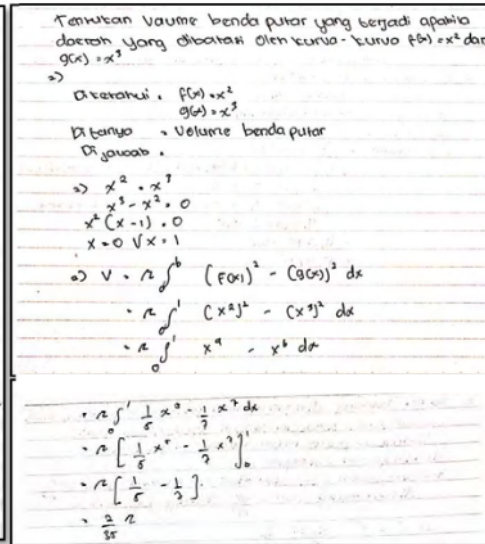 Tentukan Vaume benda putar yang terjadi apabila
daerah yang dibatasi oleh kurva-kurva f(x) = x² dan
g(x) = x³
=)
Diketahui . f(x) = x²
g(x) = x³
Ditanya = Volume benda putar
Dijawab .
=) x² = x³
x³ - x² = 0
x² (x - 1) = 0
x = 0 V x = 1
=) V = π ∫₀ᵇ (f(x))² - (g(x))² dx
= π ∫₀¹ (x²)² - (x³)² dx
= π ∫₀¹ x⁴ - x⁶ dx
= π ∫₀¹ 1/5 x⁵ - 1/7 x⁷ dx
= π [ 1/5 x⁵ - 1/7 x⁷ ]₀¹
= π [ 1/5 - 1/7 ]
= 2/35 π